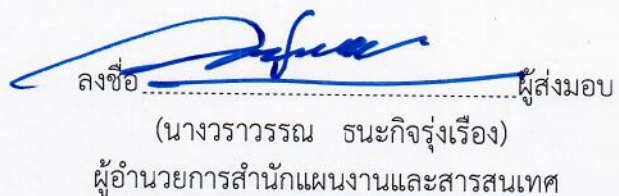 ลงชื่อ.......................................................ผู้ส่งมอบ
(นางวราวรรณ ธนะกิจรุ่งเรือง)
ผู้อำนวยการสำนักแผนงานและสารสนเทศ